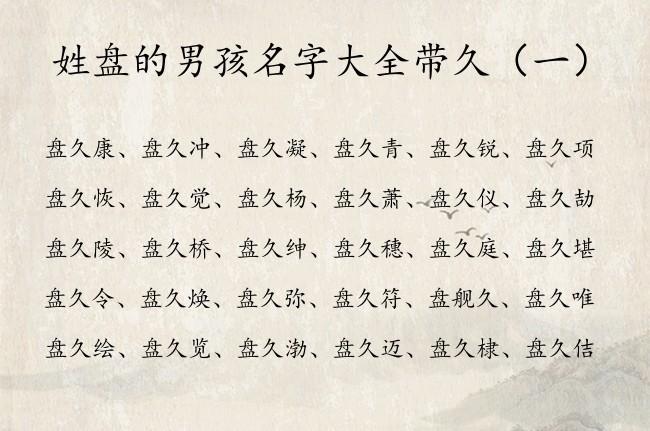 姓盘的男孩名字大全带久（一）
盘久康、盘久冲、盘久凝、盘久青、盘久锐、盘久项
盘久恢、盘久觉、盘久杨、盘久萧、盘久仪、盘久劼
盘久陵、盘久桥、盘久绅、盘久穗、盘久庭、盘久堪
盘久令、盘久焕、盘久弥、盘久符、盘舰久、盘久唯
盘久绘、盘久览、盘久渤、盘久迈、盘久棣、盘久佶